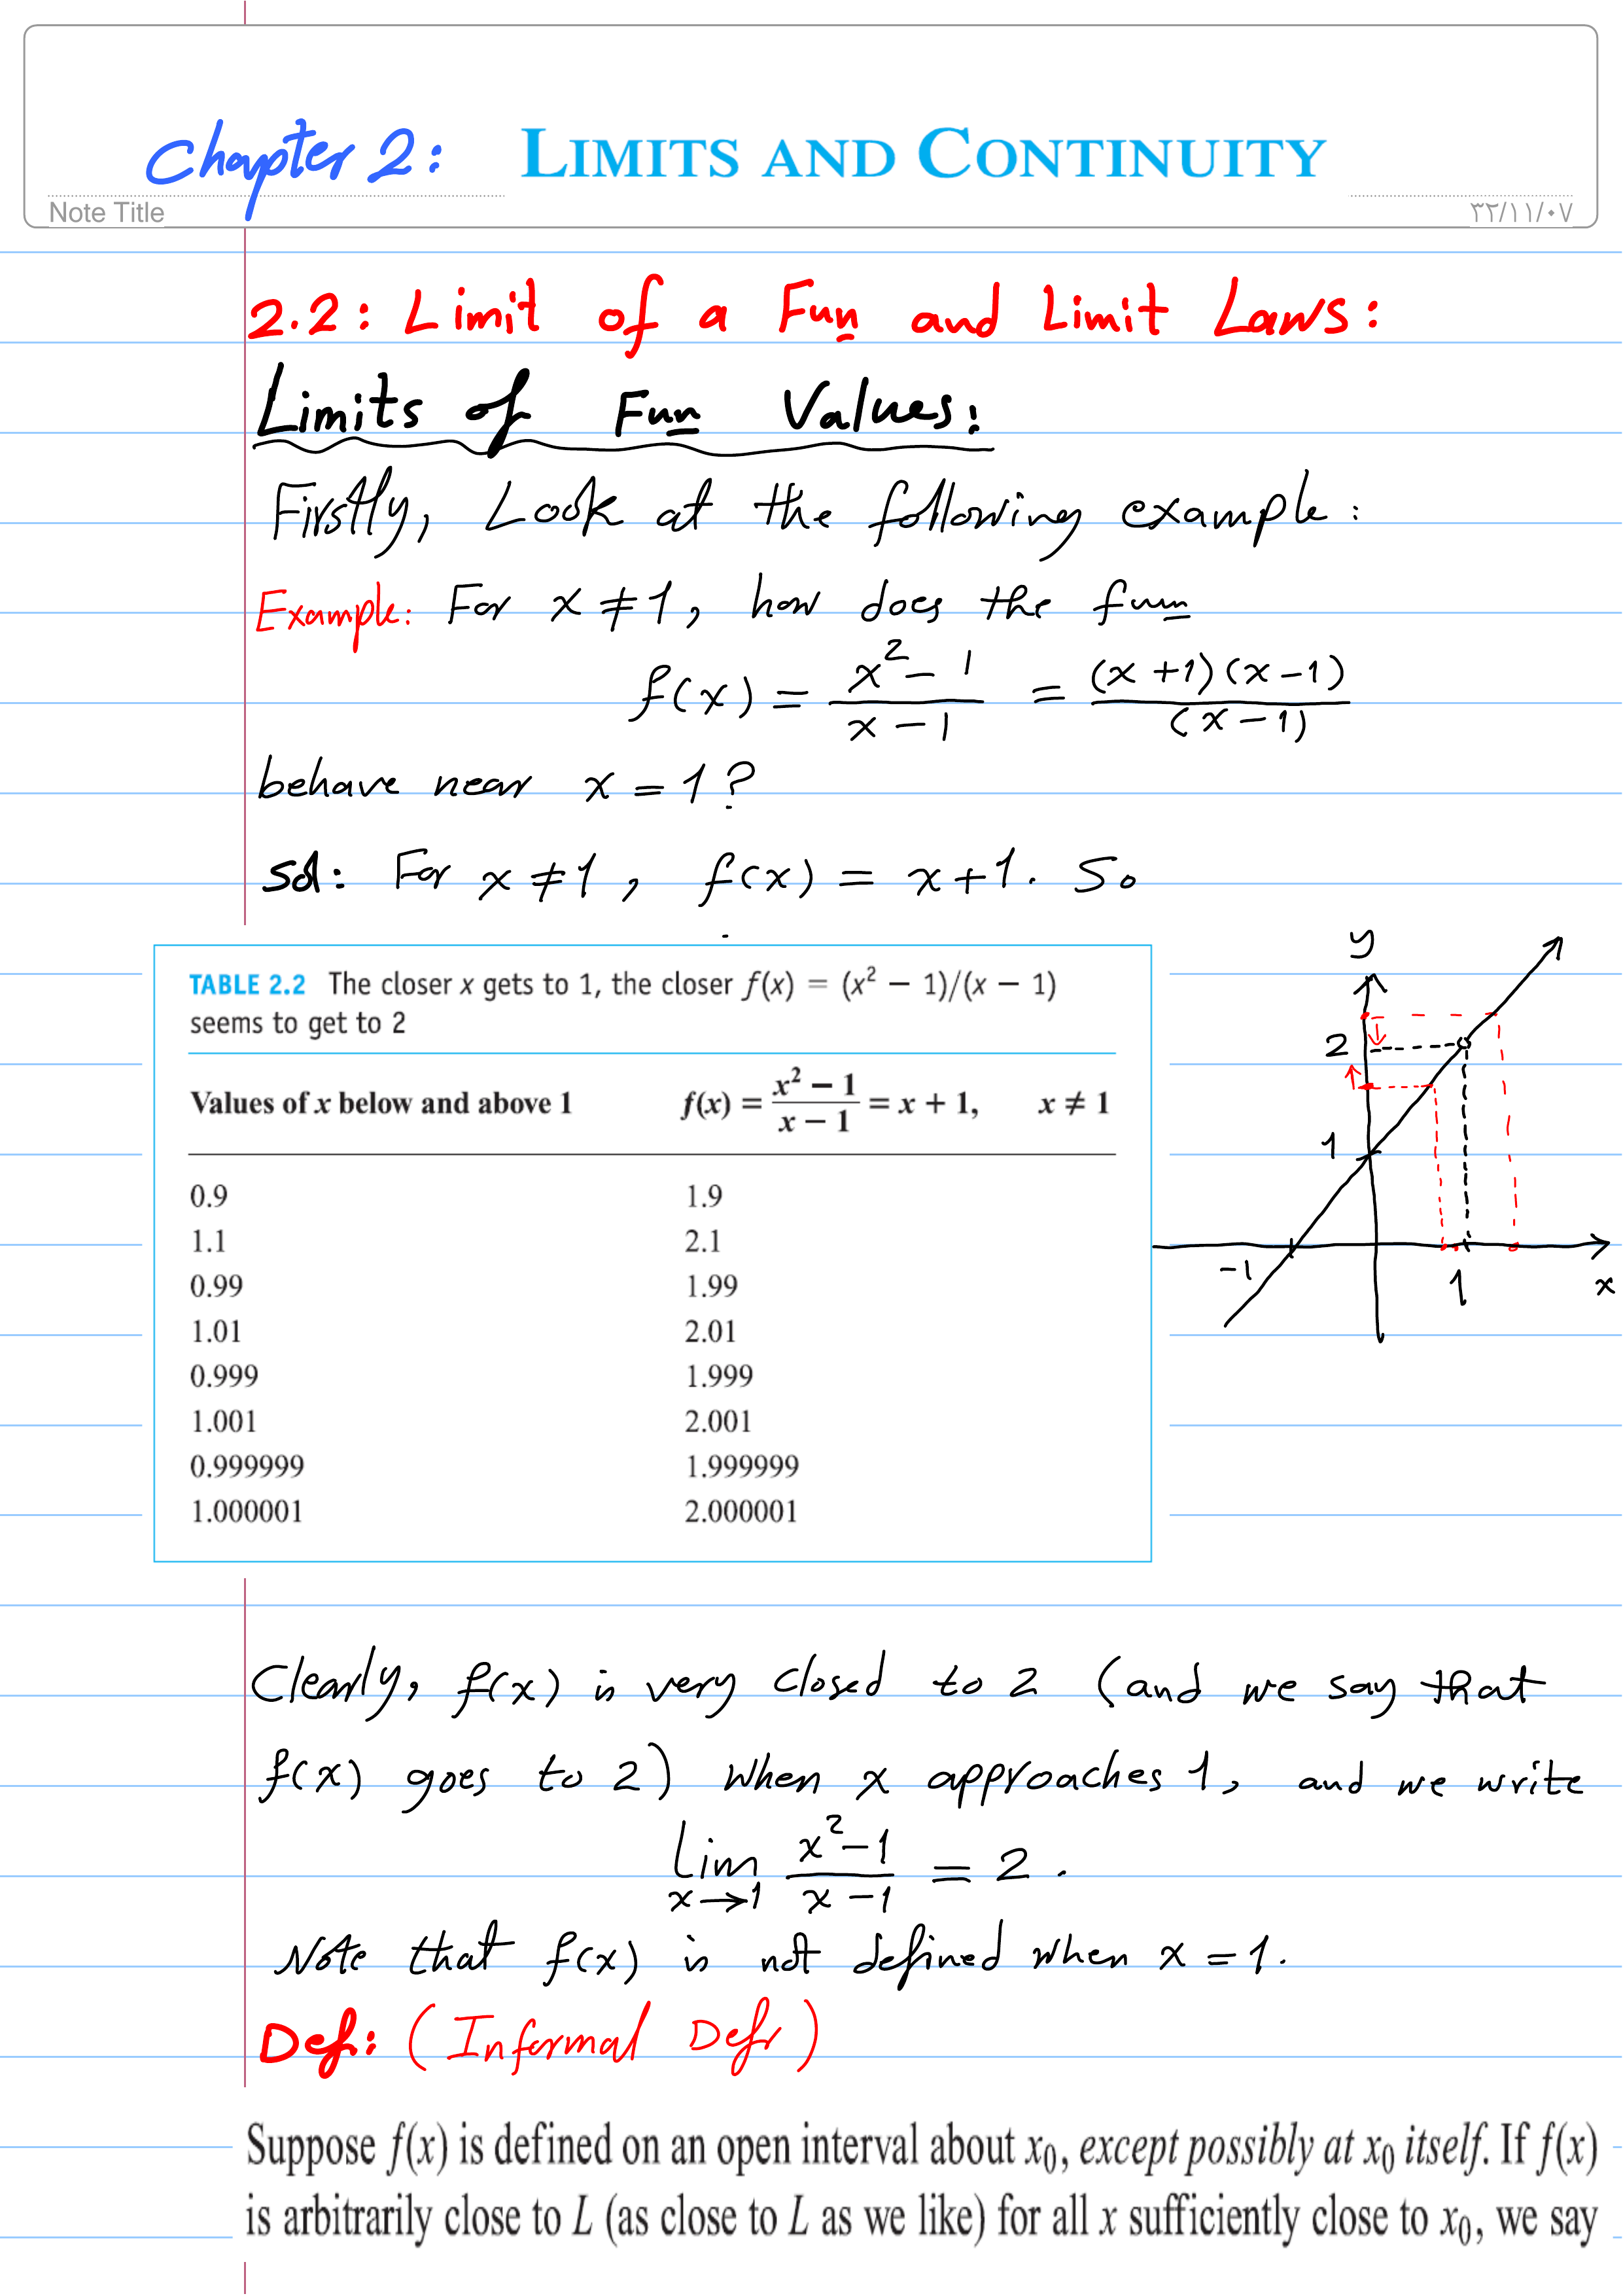 Chapter 2: LIMITS AND CONTINUITY
Note Title
٣٢/١١/٠٧
2.2: Limit of a Fun and Limit Laws:
Limits of Fun Values:
Firstly, Look at the following example:
Example: For x ≠ 1, how does the fun
f(x) = (x² - 1)/(x - 1) = ((x+1)(x-1))/((x-1))
behave near x = 1?
Sol: For x ≠ 1, f(x) = x+1. So
TABLE 2.2 The closer x gets to 1, the closer f(x) = (x² − 1)/(x − 1)
seems to get to 2
Values of x below and above 1 f(x) = (x² − 1)/(x − 1) = x + 1, x ≠ 1
0.9 1.9
1.1 2.1
0.99 1.99
1.01 2.01
0.999 1.999
1.001 2.001
0.999999 1.999999
1.000001 2.000001
y
2
1
-1
1
x
Clearly, f(x) is very closed to 2 (and we say that
f(x) goes to 2) when x approaches 1, and we write
lim x→1 (x²-1)/(x-1) = 2.
Note that f(x) is not defined when x = 1.
Def: (Informal Defn)
Suppose f(x) is defined on an open interval about x₀, except possibly at x₀ itself. If f(x)
is arbitrarily close to L (as close to L as we like) for all x sufficiently close to x₀, we say